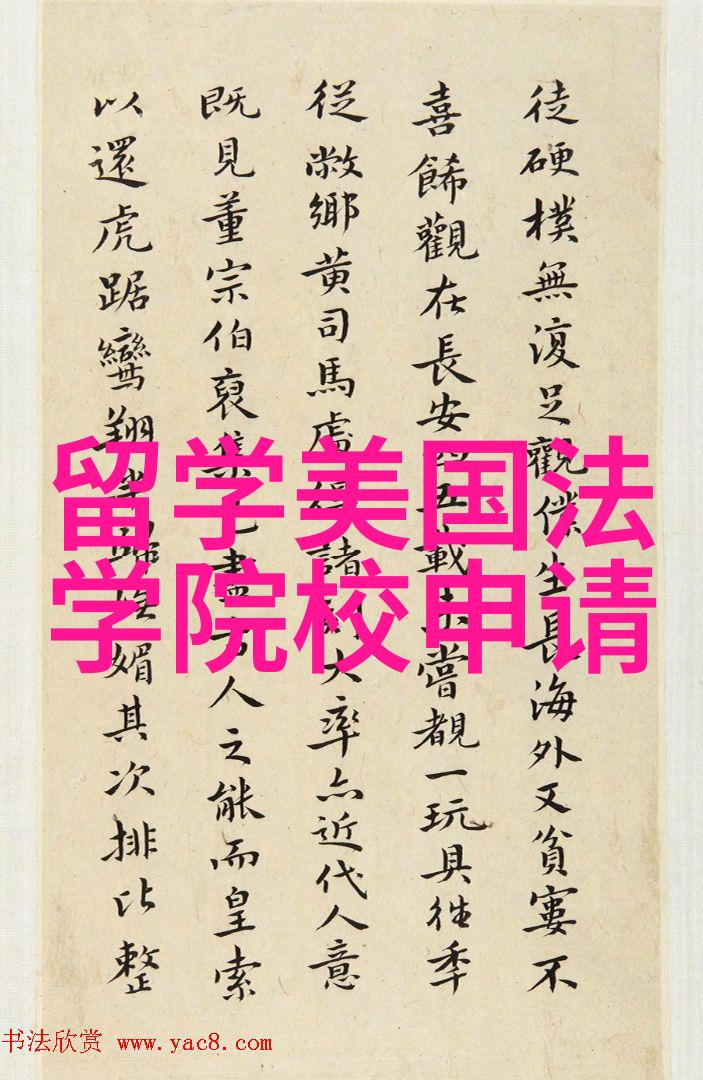 徒硬樸無復足觀僕生長海外又貧窶不
喜餙觀在長安四五載未嘗覩一玩具往季
從敝鄉黄司馬處得諸大率亦近代人意
既見董宗伯裒集盡人之能而皇索
以還虎踞鸞翔媚其次排比整
留学美国法
学院校申请
书法欣赏 www.yac8.com